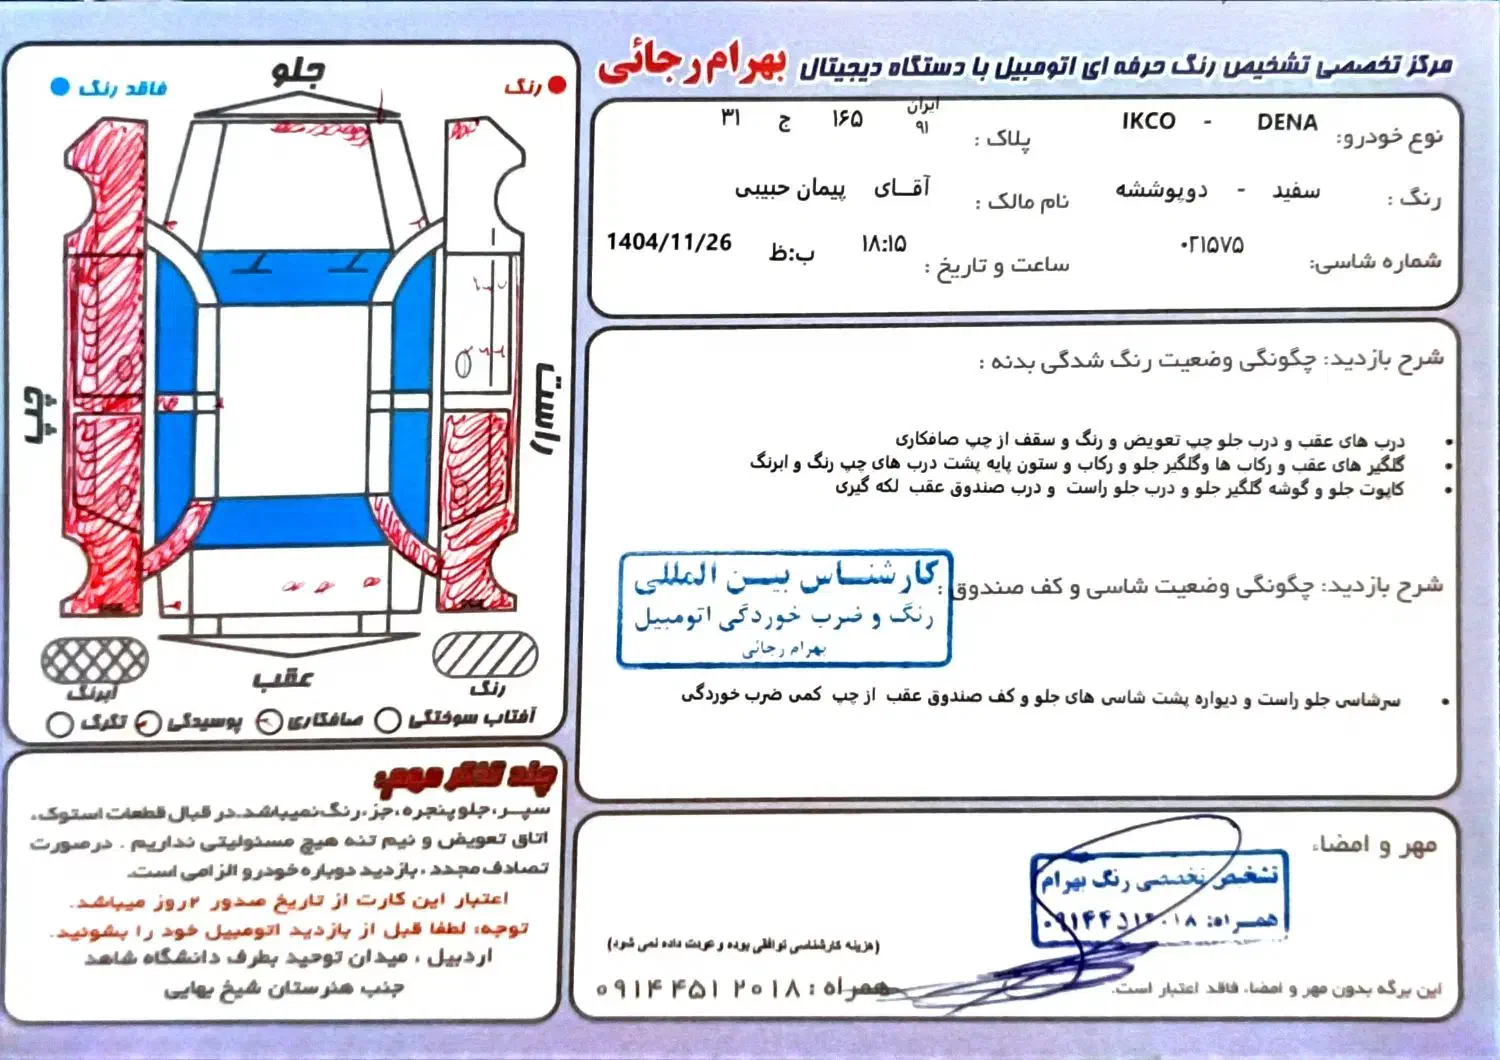 مرکز تخصصی تشخیص رنگ حرفه ای اتومبیل با دستگاه دیجیتال بهرام رجائی
نوع خودرو: DENA - IKCO پلاک : ایران ۹۱ ۱۶۵ ج ۳۱
رنگ : سفید - دوپوششه نام مالک : آقـای پیمان حبیبی
شماره شاسی: ۰۲۱۵۷۵ ساعت و تاریخ : ۱۸:۱۵ ب:ظ 1404/11/26
شرح بازدید: چگونگی وضعیت رنگ شدگی بدنه :
• درب های عقب و درب جلو چپ تعویض و رنگ و سقف از چپ صافکاری
• گلگیر های عقب و رکاب ها وگلگیر جلو و رکاب و ستون پایه پشت درب های چپ رنگ و ابرنگ
• کاپوت جلو و گوشه گلگیر جلو و درب جلو راست و درب صندوق عقب لکه گیری
شرح بازدید: چگونگی وضعیت شاسی و کف صندوق :
کارشنـاس بیـن المللی
رنگ و ضرب خوردگی اتومبیل
بهرام رجائی
• سرشاسی جلو راست و دیواره پشت شاسی های جلو و کف صندوق عقب از چپ کمی ضرب خوردگی
مهر و امضاء
تشخیص تخصصی رنگ بهرام
همـراه:
(هزینه کارشناسی توافقی بوده و عودت داده نمی شود)
این برگه بدون مهر و امضاء، فاقد اعتبار است.
همراه : ۰۹۱۴ ۴۵۱ ۲۰۱۸
رنگ
فاقد رنگ
جلو
راست
چپ
عقب
رنگ
ابرنگ
آفتاب سوختگی صافکاری پوسیدگی تگرگ
چند تذکر مهم:
سپـر، جلو پنجره، جزء رنگ نمیباشد. در قبال قطعات استوک،
اتاق تعویض و نیم تنه هیچ مسئولیتی نداریم . درصورت
تصادف مجدد، بازدید دوباره خودرو الزامی است.
اعتبار این کارت از تاریخ صدور ۲روز میباشد.
توجه: لطفا قبل از بازدید اتومبیل خود را بشوئید.
اردبیل ، میدان توحید بطرف دانشگاه شاهد
جنب هنرستان شیخ بهایی